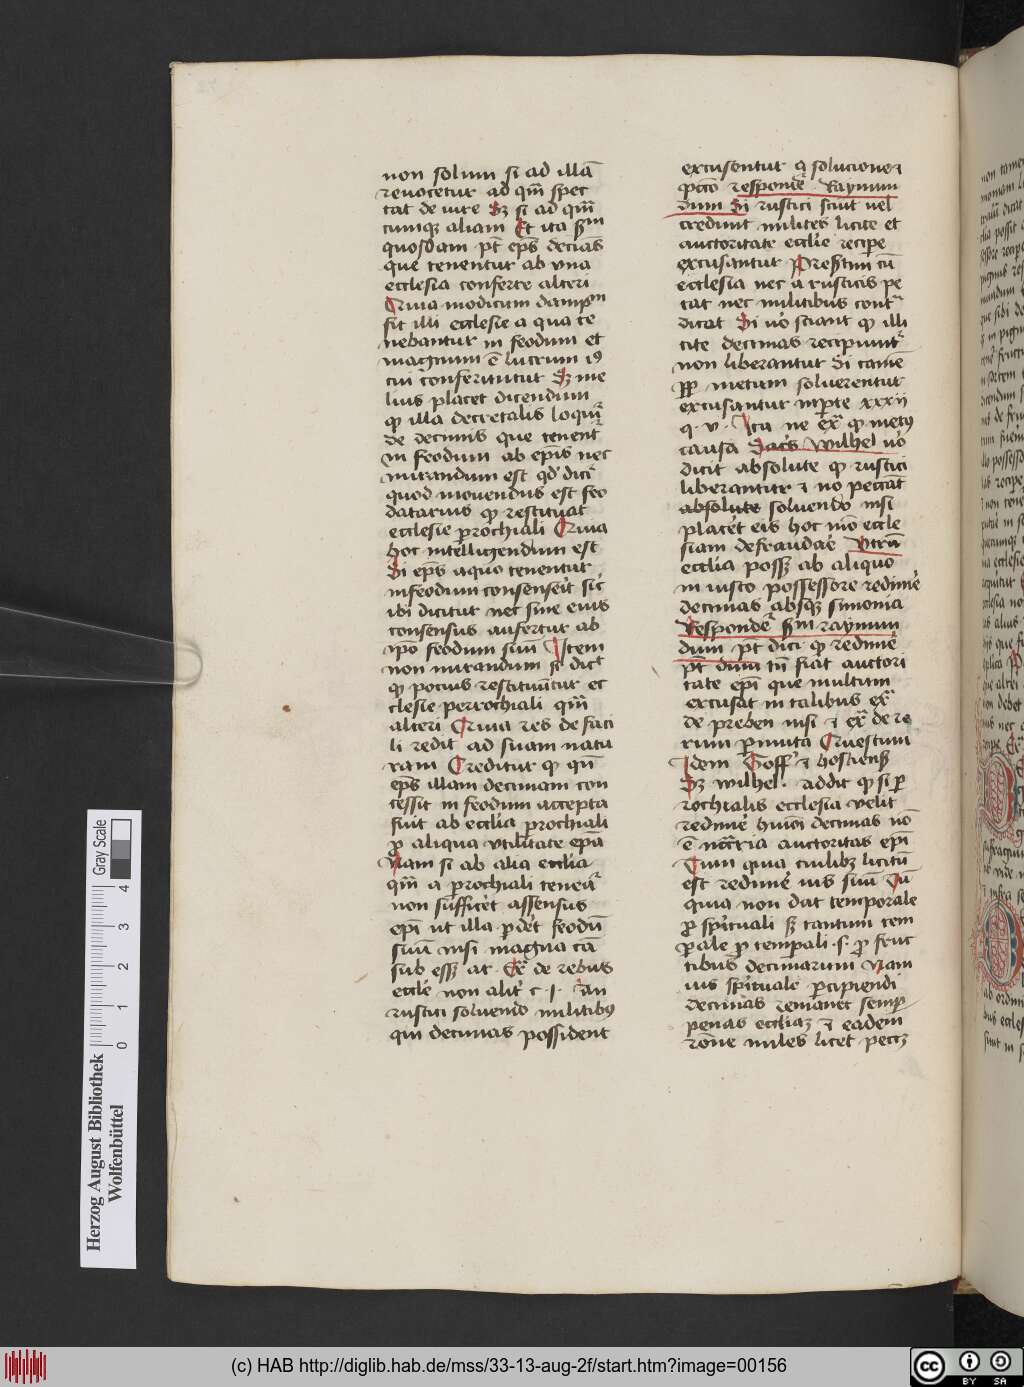 non solum si ad illā
reuocetur ad qm̄ spec
tat de iure Sꝫ si ad qm̄
cumqꝫ aliam Et ita sm
quosdam pt̄ ep̄s decīas
que tenentur ab vna
ecclesia conferre alteri
Quia modicum dampn
fit illi ecclesie a qua te
nebantur in feodum et
magnum ē lucrum iꝰ
cui conferituur Sꝫ me
lius placet dicendum
ꝙ illa decretalis loquir̄
de decimis que tenent̄
in feodum ab ep̄is nec
mirandum est qd̓ dicr̄
quod mouendus est feo
datarius ꝙ restituat
ecclesie parochiali Quia
hoc intelligendum est
Si ep̄s aquo tenentur
infeodum consenserit sic̄
ibi dicitur nec sine eius
consensus aufertur ab
ip̄o feodum suū Item
non mirandum si dict
ꝙ pocius restituūtur ec
clesie perrochiali qm̄
alteri Quia res de faci
li redit ad suam natu
ram Creditur ꝙ qn̄
ep̄s illam decimam con
cessit in feodum accepta
fuit ab ecclīa prochiali
ꝓ aliqua vtilitate ep̄a
Nam si ab alia ecclīa
qm̄ a prochiali teneār
non sufficet assensus
ep̄i ut illa ꝑdet feodū
suū nisi magna cā
sub essꝫ at. Ex̄ de rebus
eccle non alit̄ c. I. An
rustici soluendo militibꝰ
qui decimas possident
excusentur a solucione
p̄cc̄o respondē Raymun
dum Si rustici sciūt uel
credunt milites licite et
auctoritate ecclie recipe
excusantur Presertim cū
ecclesia nec a rusticis pe
tat nec militibus contr̄
dicat Si uo sciant ꝙ illi
cite decimas recipiunt̄
non liberantur Si tamē
ꝓp metum soluerentur
excusantur in parte xxxij
q. v. Ita ne Ex̄ ꝙ metꝰ
causa Sacs Wilhel uo
dicit absolute ꝙ rustici
liberantur ⁊ nō peccāt
absolute soluendo nisi
placet eis hoc mō eccle
siam defraudare Vtrū
ecclīa possꝫ ab aliquo
in iusto possessore redimē
decimas absqꝫ simonia
Respondē sm raymun
dum pt̄ dici ꝙ redimē
pt̄ dum tn̄ fiat auctori
tate ep̄i que multum
excusat in talibus ex̄
de preben nisi ⁊ ex̄ de re
rum pmuta Questum
Idem Goff ⁊ hostienß
Sꝫ wilhel. addit ꝙ si p
rochialis ecclesia velit
redimē huiōi decimas nō
ē nccr̄ia auctoritas ep̄i
Cum quia cuilibꝫ licitū
est redimē ius suū Cū
quia non dat temporale
ꝓ spirituali sꝫ tantum tem
porale ꝓ temporali .s. ꝓ fruc
tibus decimarum Nam
ius spirituale percipiendi
decimas remanet semp
penas eccliaꝫ ⁊ eadem
rōne miles licet pecc̄ꝫ
Herzog August Bibliothek
Wolfenbüttel
Gray Scale
0 1 2 3 4
(c) HAB http://diglib.hab.de/mss/33-13-aug-2f/start.htm?image=00156
cc BY SA